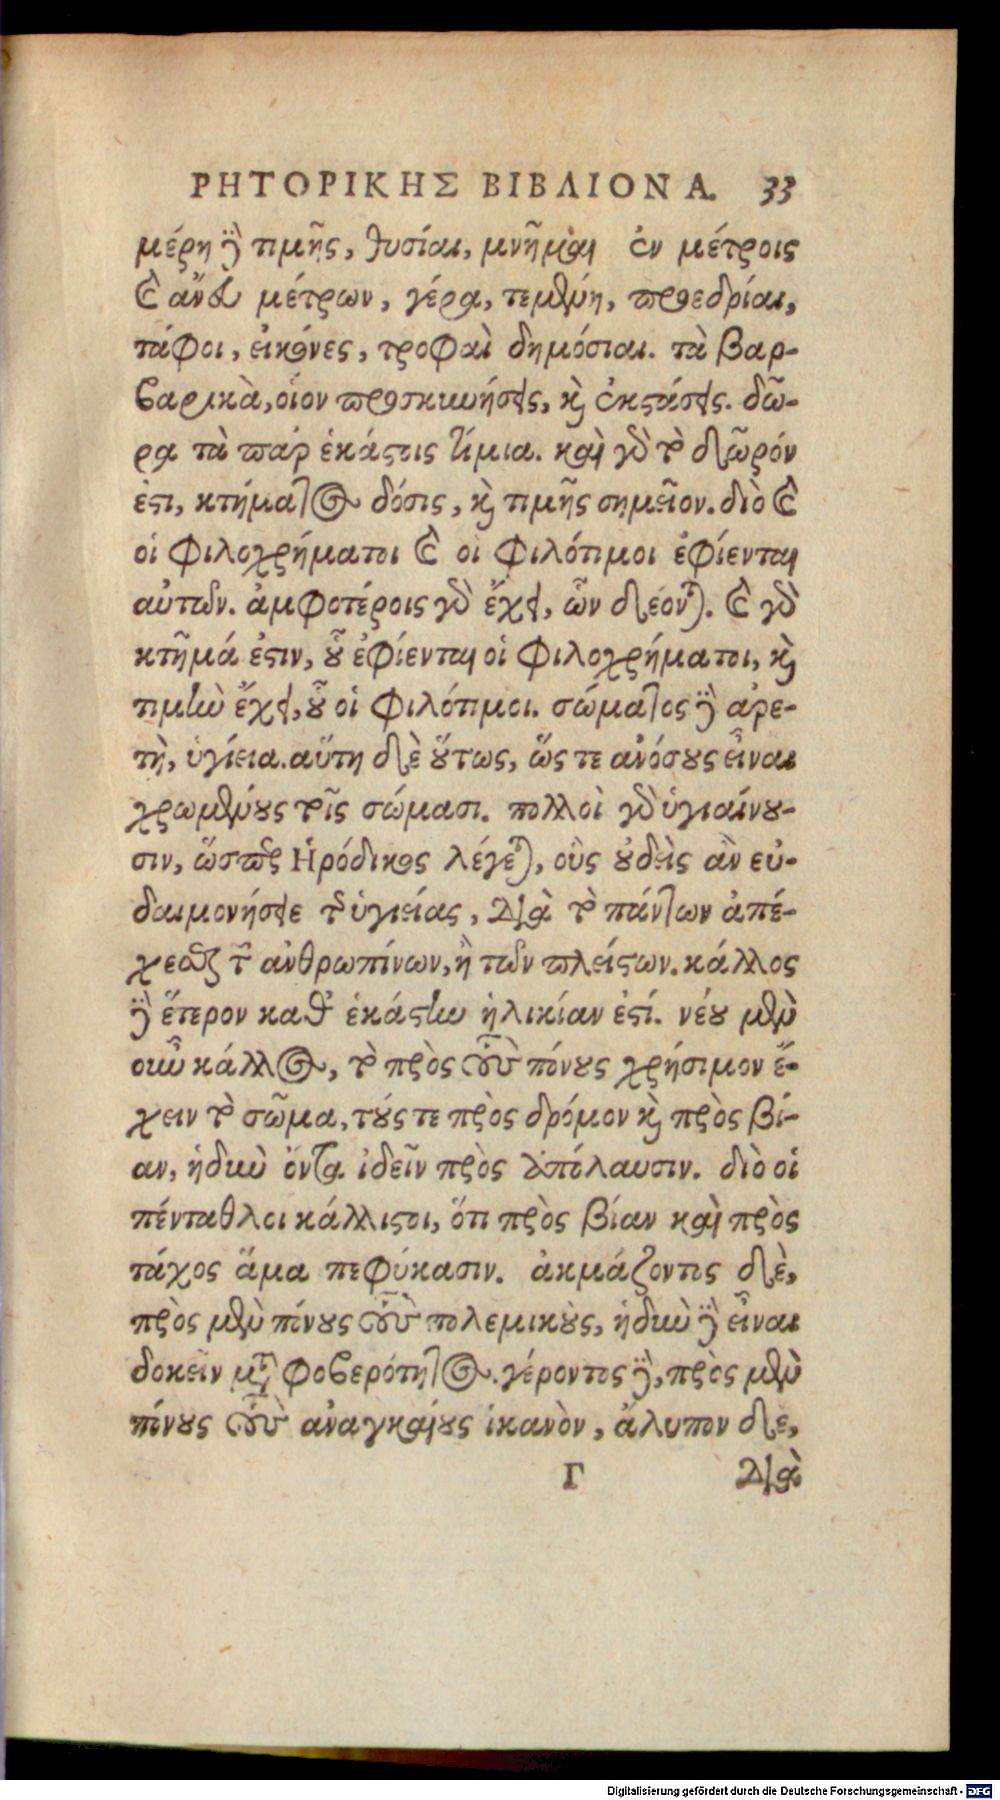 ΡΗΤΟΡΙΚΗΣ ΒΙΒΛΙΟΝ Α. 33
μέρη δὲ τιμῆς, θυσίαι, μνῆμαι ἐν μέτροις
καὶ ἄνευ μέτρων, γέρα, τεμένη, προεδρίαι,
τάφοι, εἰκόνες, τροφαὶ δημόσιαι. τὰ βαρ-
βαρικὰ, οἷον προσκυνήσεις, καὶ ἐκστάσεις. δῶ-
ρα τὰ παρ' ἑκάστοις τίμια. καὶ γὰρ τὸ δῶρόν
ἐστι, κτήματος δόσις, καὶ τιμῆς σημεῖον. διὸ καὶ
οἱ φιλοχρήματοι καὶ οἱ φιλότιμοι ἐφίενται
αὐτῶν. ἀμφοτέροις γὰρ ἔχει, ὧν δέονται. καὶ γὰρ
κτῆμά ἐστιν, οὗ ἐφίενται οἱ φιλοχρήματοι, καὶ
τιμὴν ἔχει, οὗ οἱ φιλότιμοι. σώματος δὲ ἀρε-
τὴ, ὑγίεια. αὕτη δὲ οὕτως, ὥς τε ἀνόσους εἶναι
χρωμένους τοῖς σώμασι. πολλοὶ γὰρ ὑγιαίνου-
σιν, ὥσπερ Ἡρόδικος λέγεται, οὓς οὐδεὶς ἂν εὐ-
δαιμονήσειε τῆς ὑγιείας, διὰ τὸ πάντων ἀπέ-
χεσθαι τῶν ἀνθρωπίνων, ἢ τῶν πλείστων. κάλλος
δὲ ἕτερον καθ' ἑκάστην ἡλικίαν ἐστί. νέου μὲν
οὖν κάλλος, τὸ πρὸς τοὺς πόνους χρήσιμον ἔ-
χειν τὸ σῶμα, τούς τε πρὸς δρόμον καὶ πρὸς βί-
αν, ἡδὺν ὄντα ἰδεῖν πρὸς ἀπόλαυσιν. διὸ οἱ
πένταθλοι κάλλιστοι, ὅτι πρὸς βίαν καὶ πρὸς
τάχος ἅμα πεφύκασιν. ἀκμάζοντος δὲ,
πρὸς μὲν πόνους τοὺς πολεμικοὺς, ἡδὺν δὲ εἶναι
δοκεῖν μετὰ φοβερότητος. γέροντος δὲ, πρὸς μὲν
πόνους τοὺς ἀναγκαίους ἱκανὸν, ἄλυπον δε,
Γ διὰ
Digitalisierung gefördert durch die Deutsche Forschungsgemeinschaft - DFG